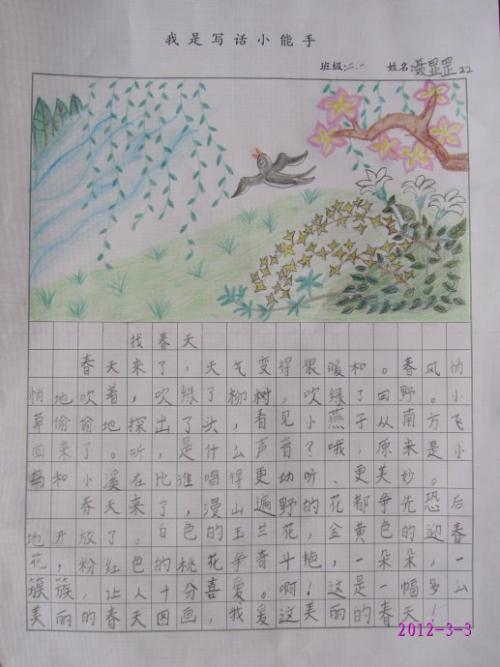 我是写话小能手
班级:二.一 姓名:聂显罡 22
找春天
春天来了，天气变得很暖和。春风悄
悄地吹着，吹绿了柳树，吹绿了田野。小
草偷偷地探出了头，看见小燕子从南方飞
回来了。听，是什么声音？哦，原来是小
鸟和小溪在比谁唱得更动听、更美妙。
春天来了，漫山遍野的花都争先恐后
地开放了。白色的玉兰花，金黄色的迎春
花，粉红色的桃花争奇斗艳，一朵朵，一
簇簇，让人十分喜爱。啊！这是一幅多么
美丽的春天图画，我爱这美丽的春天！
2012-3-3